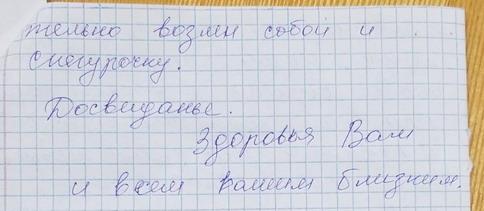 тельно возми собой и
снегурочку.
Досвиданье.
Здоровья Вам
и всем вашим близким.